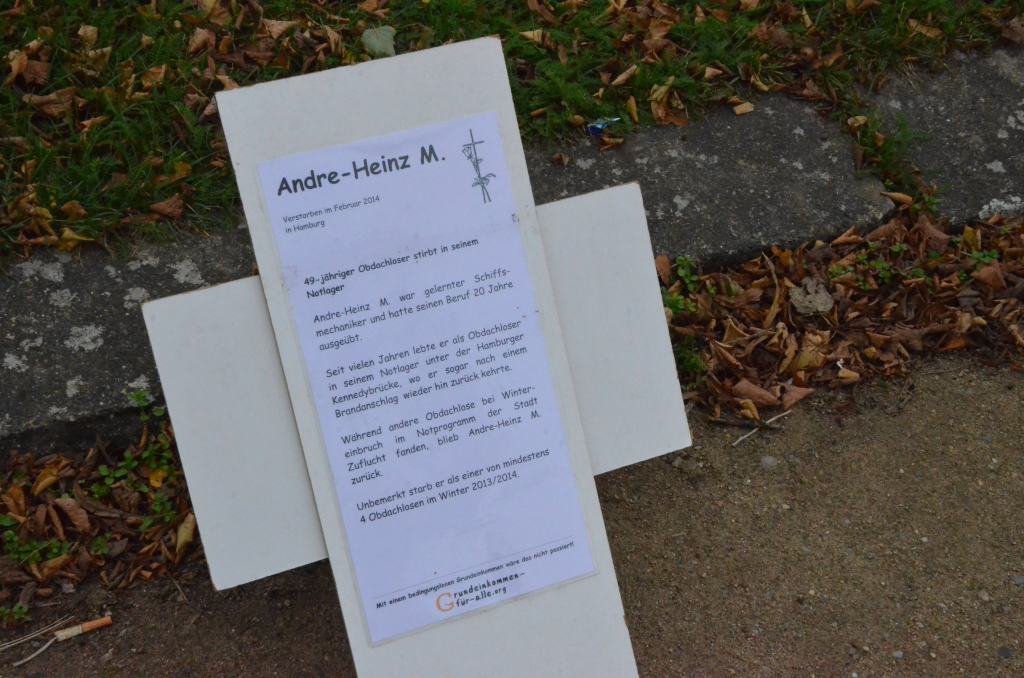 Andre-Heinz M.
Verstorben im Februar 2014
in Hamburg
49-jähriger Obdachloser stirbt in seinem
Notlager
Andre-Heinz M. war gelernter Schiffs-
mechaniker und hatte seinen Beruf 20 Jahre
ausgeübt.
Seit vielen Jahren lebte er als Obdachloser
in seinem Notlager unter der Hamburger
Kennedybrücke, wo er sogar nach einem
Brandanschlag wieder hin zurück kehrte.
Während andere Obdachlose bei Winter-
einbruch im Notprogramm der Stadt
Zuflucht fanden, blieb Andre-Heinz M.
zurück.
Unbemerkt starb er als einer von mindestens
4 Obdachlosen im Winter 2013/2014.
Mit einem bedingungslosen Grundeinkommen wäre das nicht passiert!
Grundeinkommen-
für-alle.org